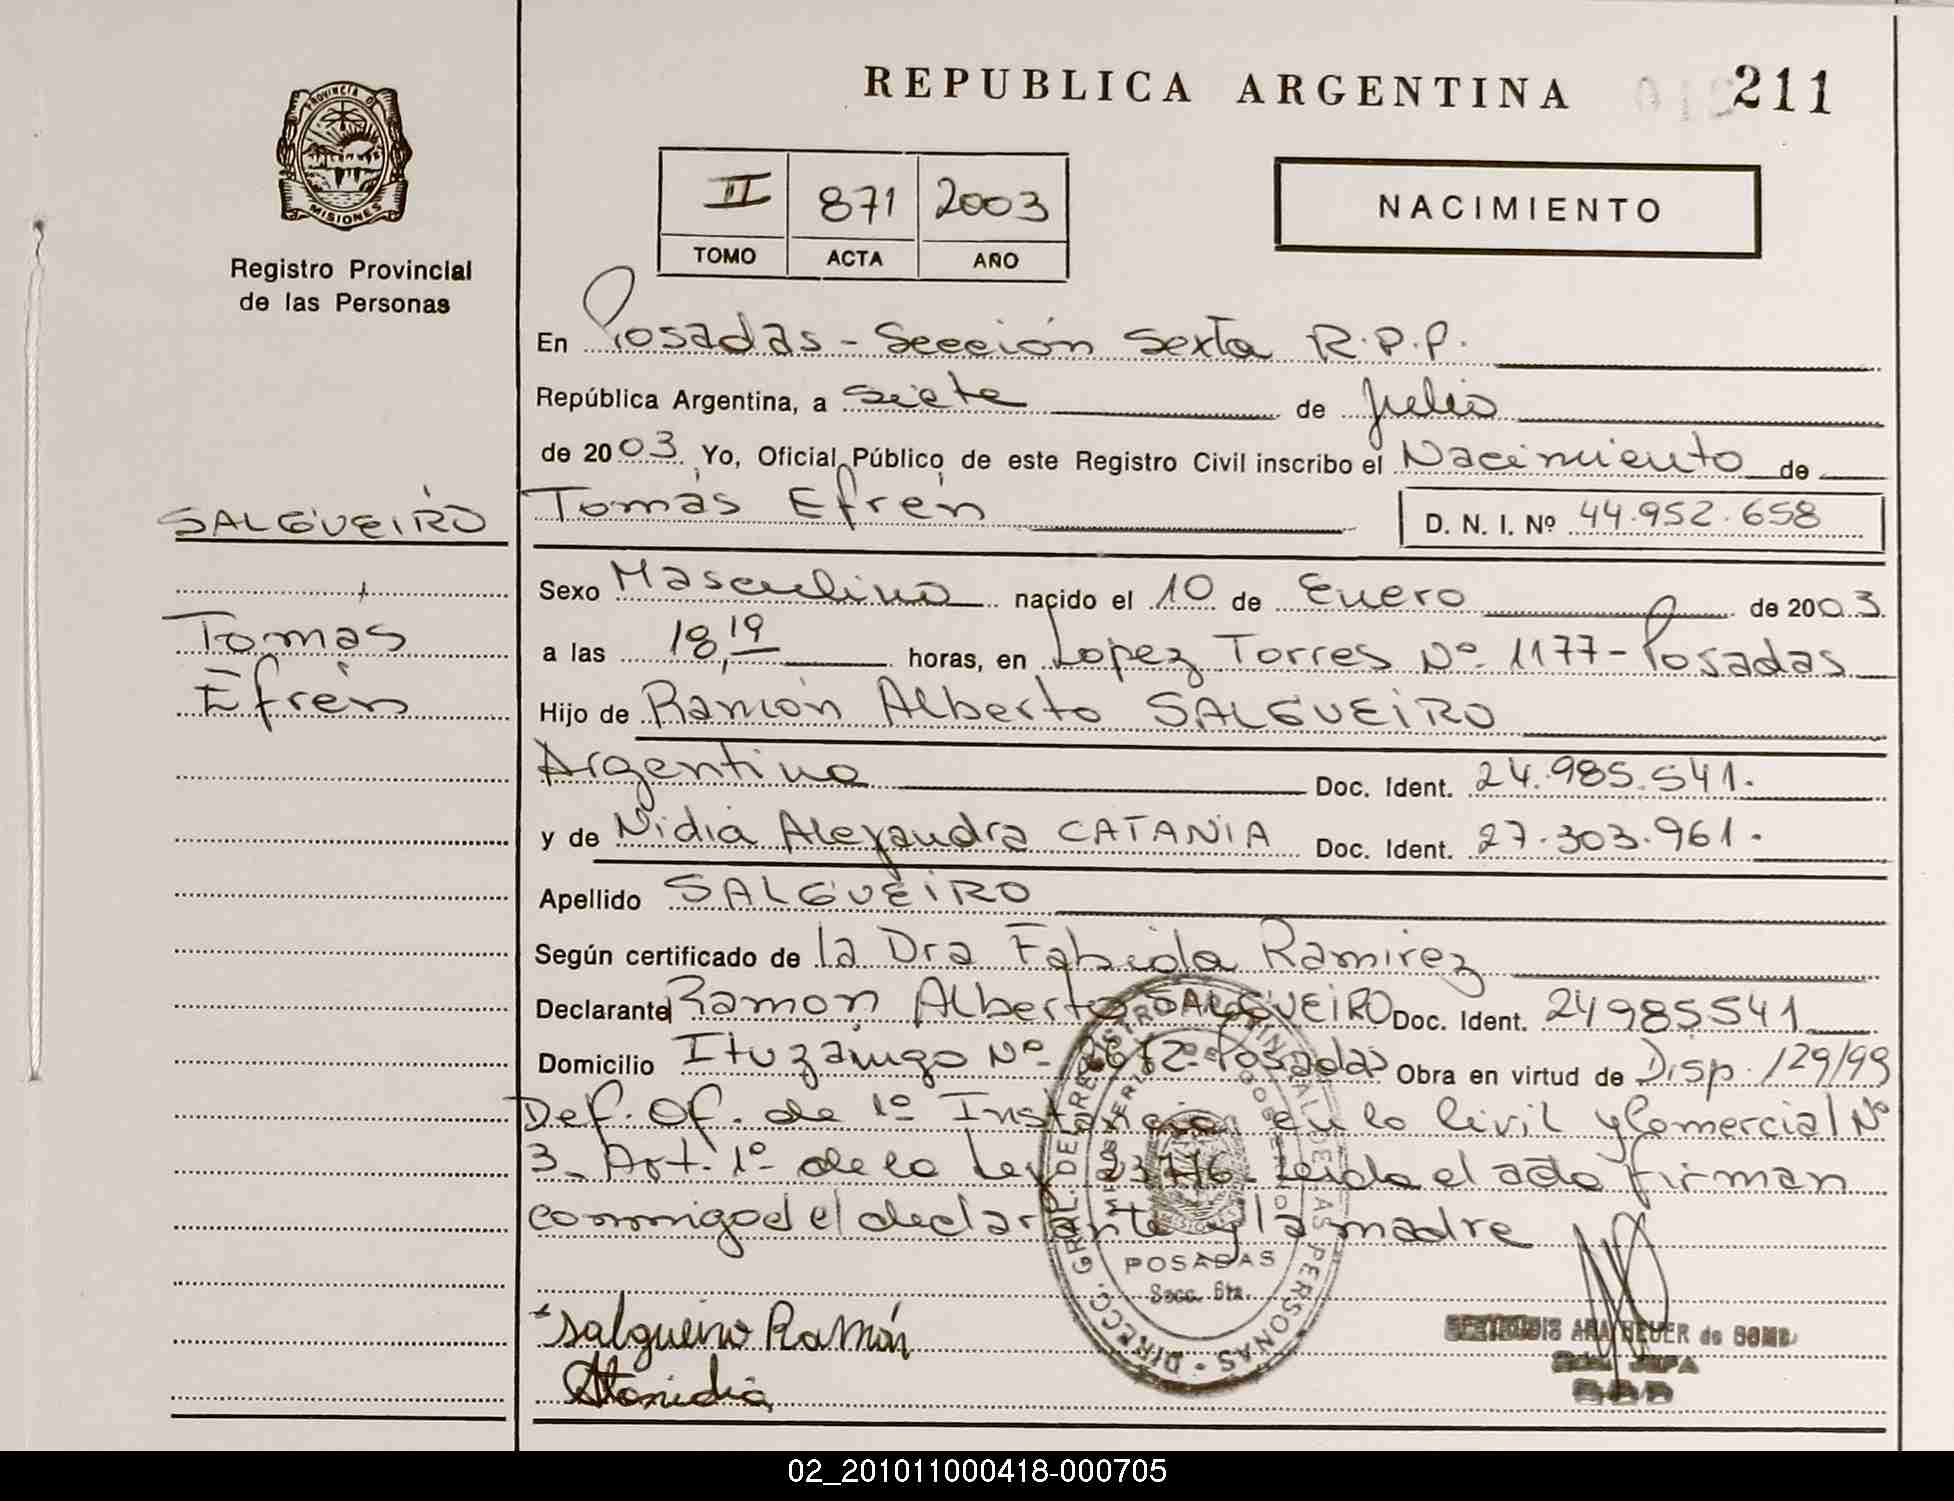 REPUBLICA ARGENTINA 211
PROVINCIA DE
MISIONES
Registro Provincial
de las Personas
II 871 2003
TOMO ACTA AÑO
NACIMIENTO
En Posadas - Sección Sexta R.P.P.
República Argentina, a siete de julio
de 2003 Yo, Oficial Público de este Registro Civil inscribo el Nacimiento de
Tomás Efrén D. N. I. Nº 44.952.658
SALGUEIRO
Tomás
Efrén
Sexo Masculino nacido el 10 de Enero de 2003.
a las 18,19 horas, en Lopez Torres Nº 1177 - Posadas
Hijo de Ramón Alberto SALGUEIRO
Argentino Doc. Ident. 24.985.541.
y de Nidia Alejandra CATANIA Doc. Ident. 27.303.961.
Apellido SALGUEIRO
Según certificado de la Dra Fabiola Ramirez
Declarante Ramon Alberto SALGUEIRO Doc. Ident. 24985541
Domicilio Ituzaingo Nº Posadas Obra en virtud de Disp. 129/99
Def. Of. de 1º Instancia en lo Civil y Comercial Nº
3. Art. 1º de la Ley 23776. Leido el acto firman
conmigo el declarante y la madre
DIRECC. GRAL. DEL REGISTRO PROVINCIAL DE LAS PERSONAS
MINISTERIO DE GOBIERNO
POSADAS
Secc. 6ta.
Salgueiro Ramón
de
02_201011000418-000705